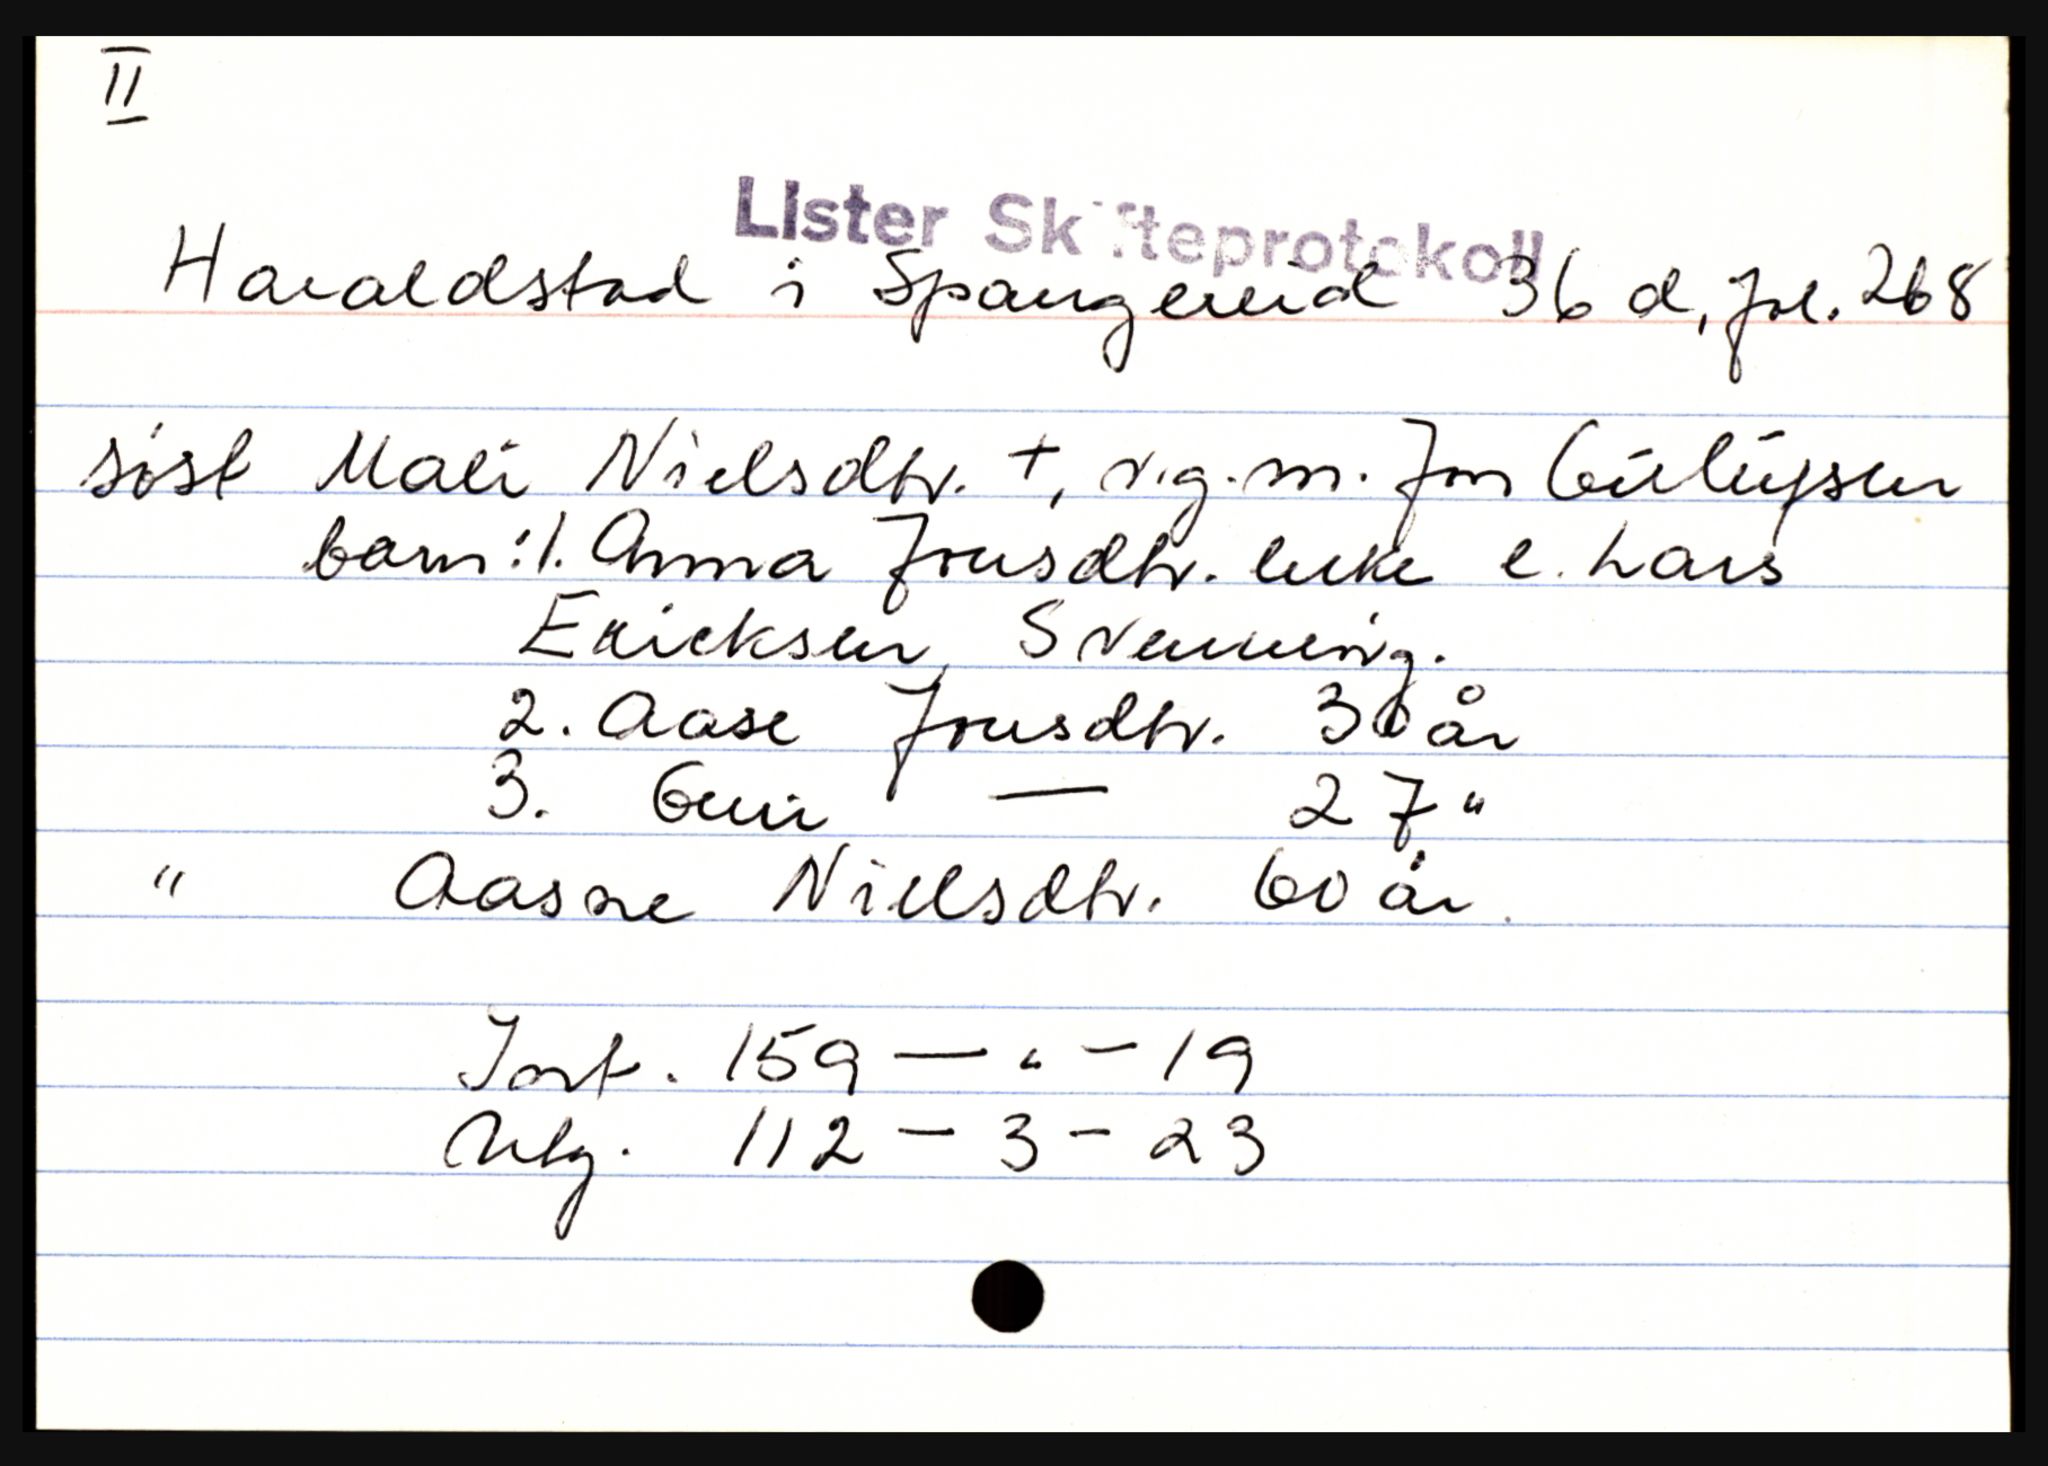 II
Lister Skifteprotokoll
Haraldstad i Spangereid 36 d, fol. 268
søst Mali Nielsdtr. +, v.g.m. Jon
barn: 1. Anna Jonsdtr. enke e. Lars
Ericksen Svennevig.
2. Aase Jonsdtr. 30 år
3. Guri — 27 "
" Aasne Nielsdtr. 60 år.
Iort. 159 — " — 19
Utlg. 112 — 3 — 23